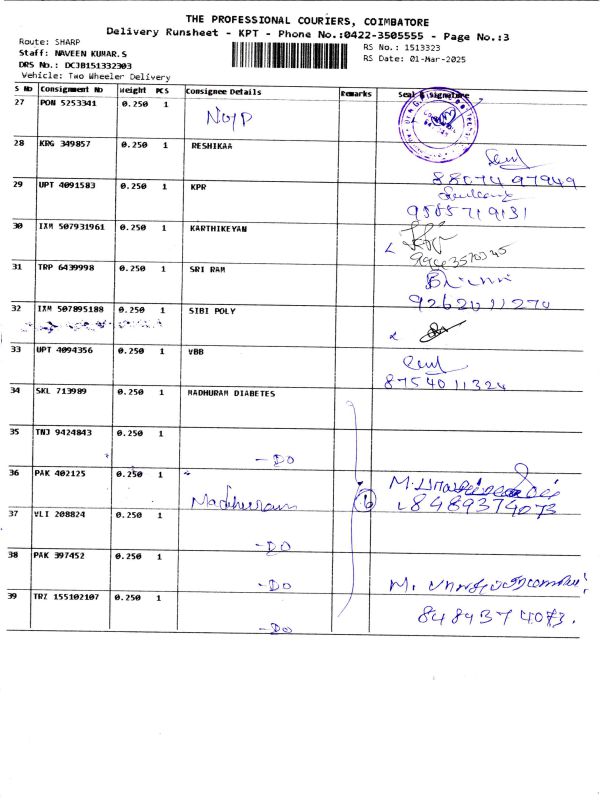 THE PROFESSIONAL COURIERS, COIMBATORE
Delivery Runsheet - KPT - Phone No.:0422-3505555 - Page No.:3
Route: SHARP
RS No.: 1513323
Staff: NAVEEN KUMAR.S
RS Date: 01-Mar-2025
DRS No.: DCJB151332303
Vehicle: Two Wheeler Delivery
S No Consignment No Weight PCS Consignee Details Remarks Seal & Signature
27 PON 5253341 0.250 1
28 KRG 349857 0.250 1 RESHIKAA
88074 97949
29 UPT 4091583 0.250 1 KPR
30 IXM 507931961 0.250 1 KARTHIKEYAN
31 TRP 6439998 0.250 1 SRI RAM
92620 11270
32 IXM 507895188 0.250 1 SIBI POLY
33 UPT 4094356 0.250 1 VBB
8754011324
34 SKL 713989 0.250 1 MADHURAM DIABETES
35 TNJ 9424843 0.250 1
- DO
36 PAK 402125 0.250 1 Madhuram 6
8489374073
37 VLI 208824 0.250 1
- DO
38 PAK 397452 0.250 1
- DO
39 TRZ 155102107 0.250 1
8489374073.
- DO